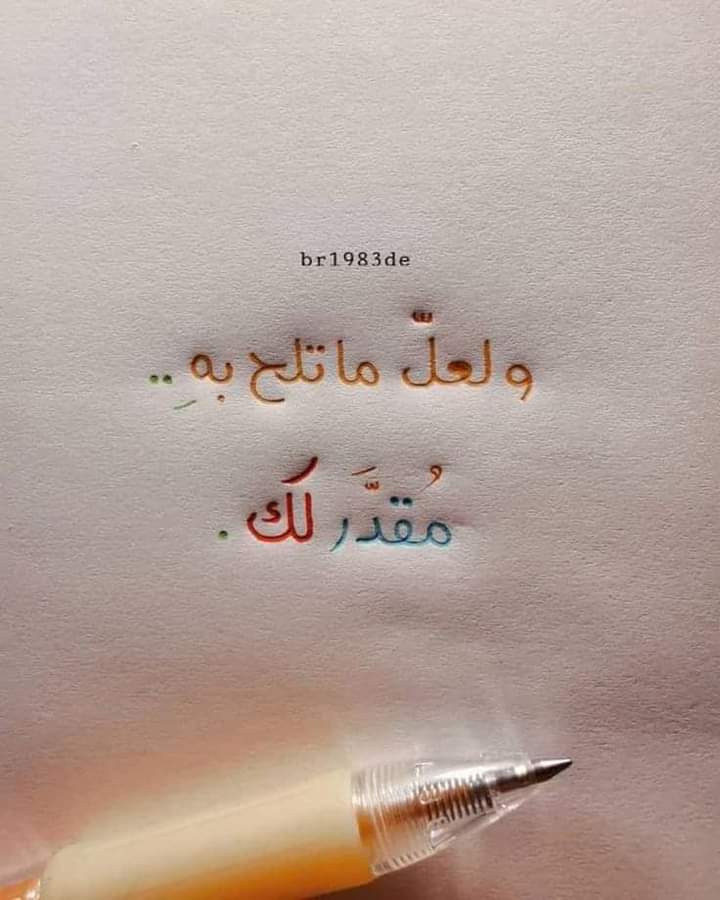 br1983de
ولعلّ ما تلح بهِ ..
مُقدَّر لَك .